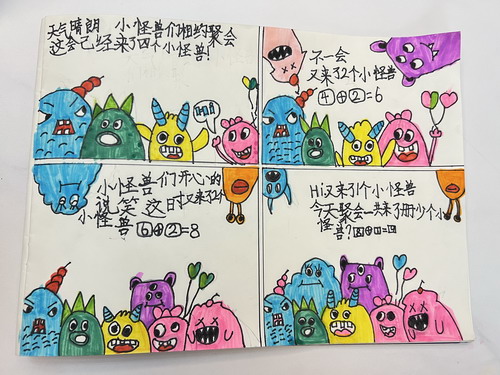 天气晴朗 小怪兽们相约聚会
这会已经来了四个小怪兽!
Hi
不一会
又来了2个小怪兽
4+2=6
小怪兽们开心的
说笑 这时又来了2个
小怪兽 6+2=8
Hi又来了1个小怪兽
今天聚会一共来了 少个小
怪兽?